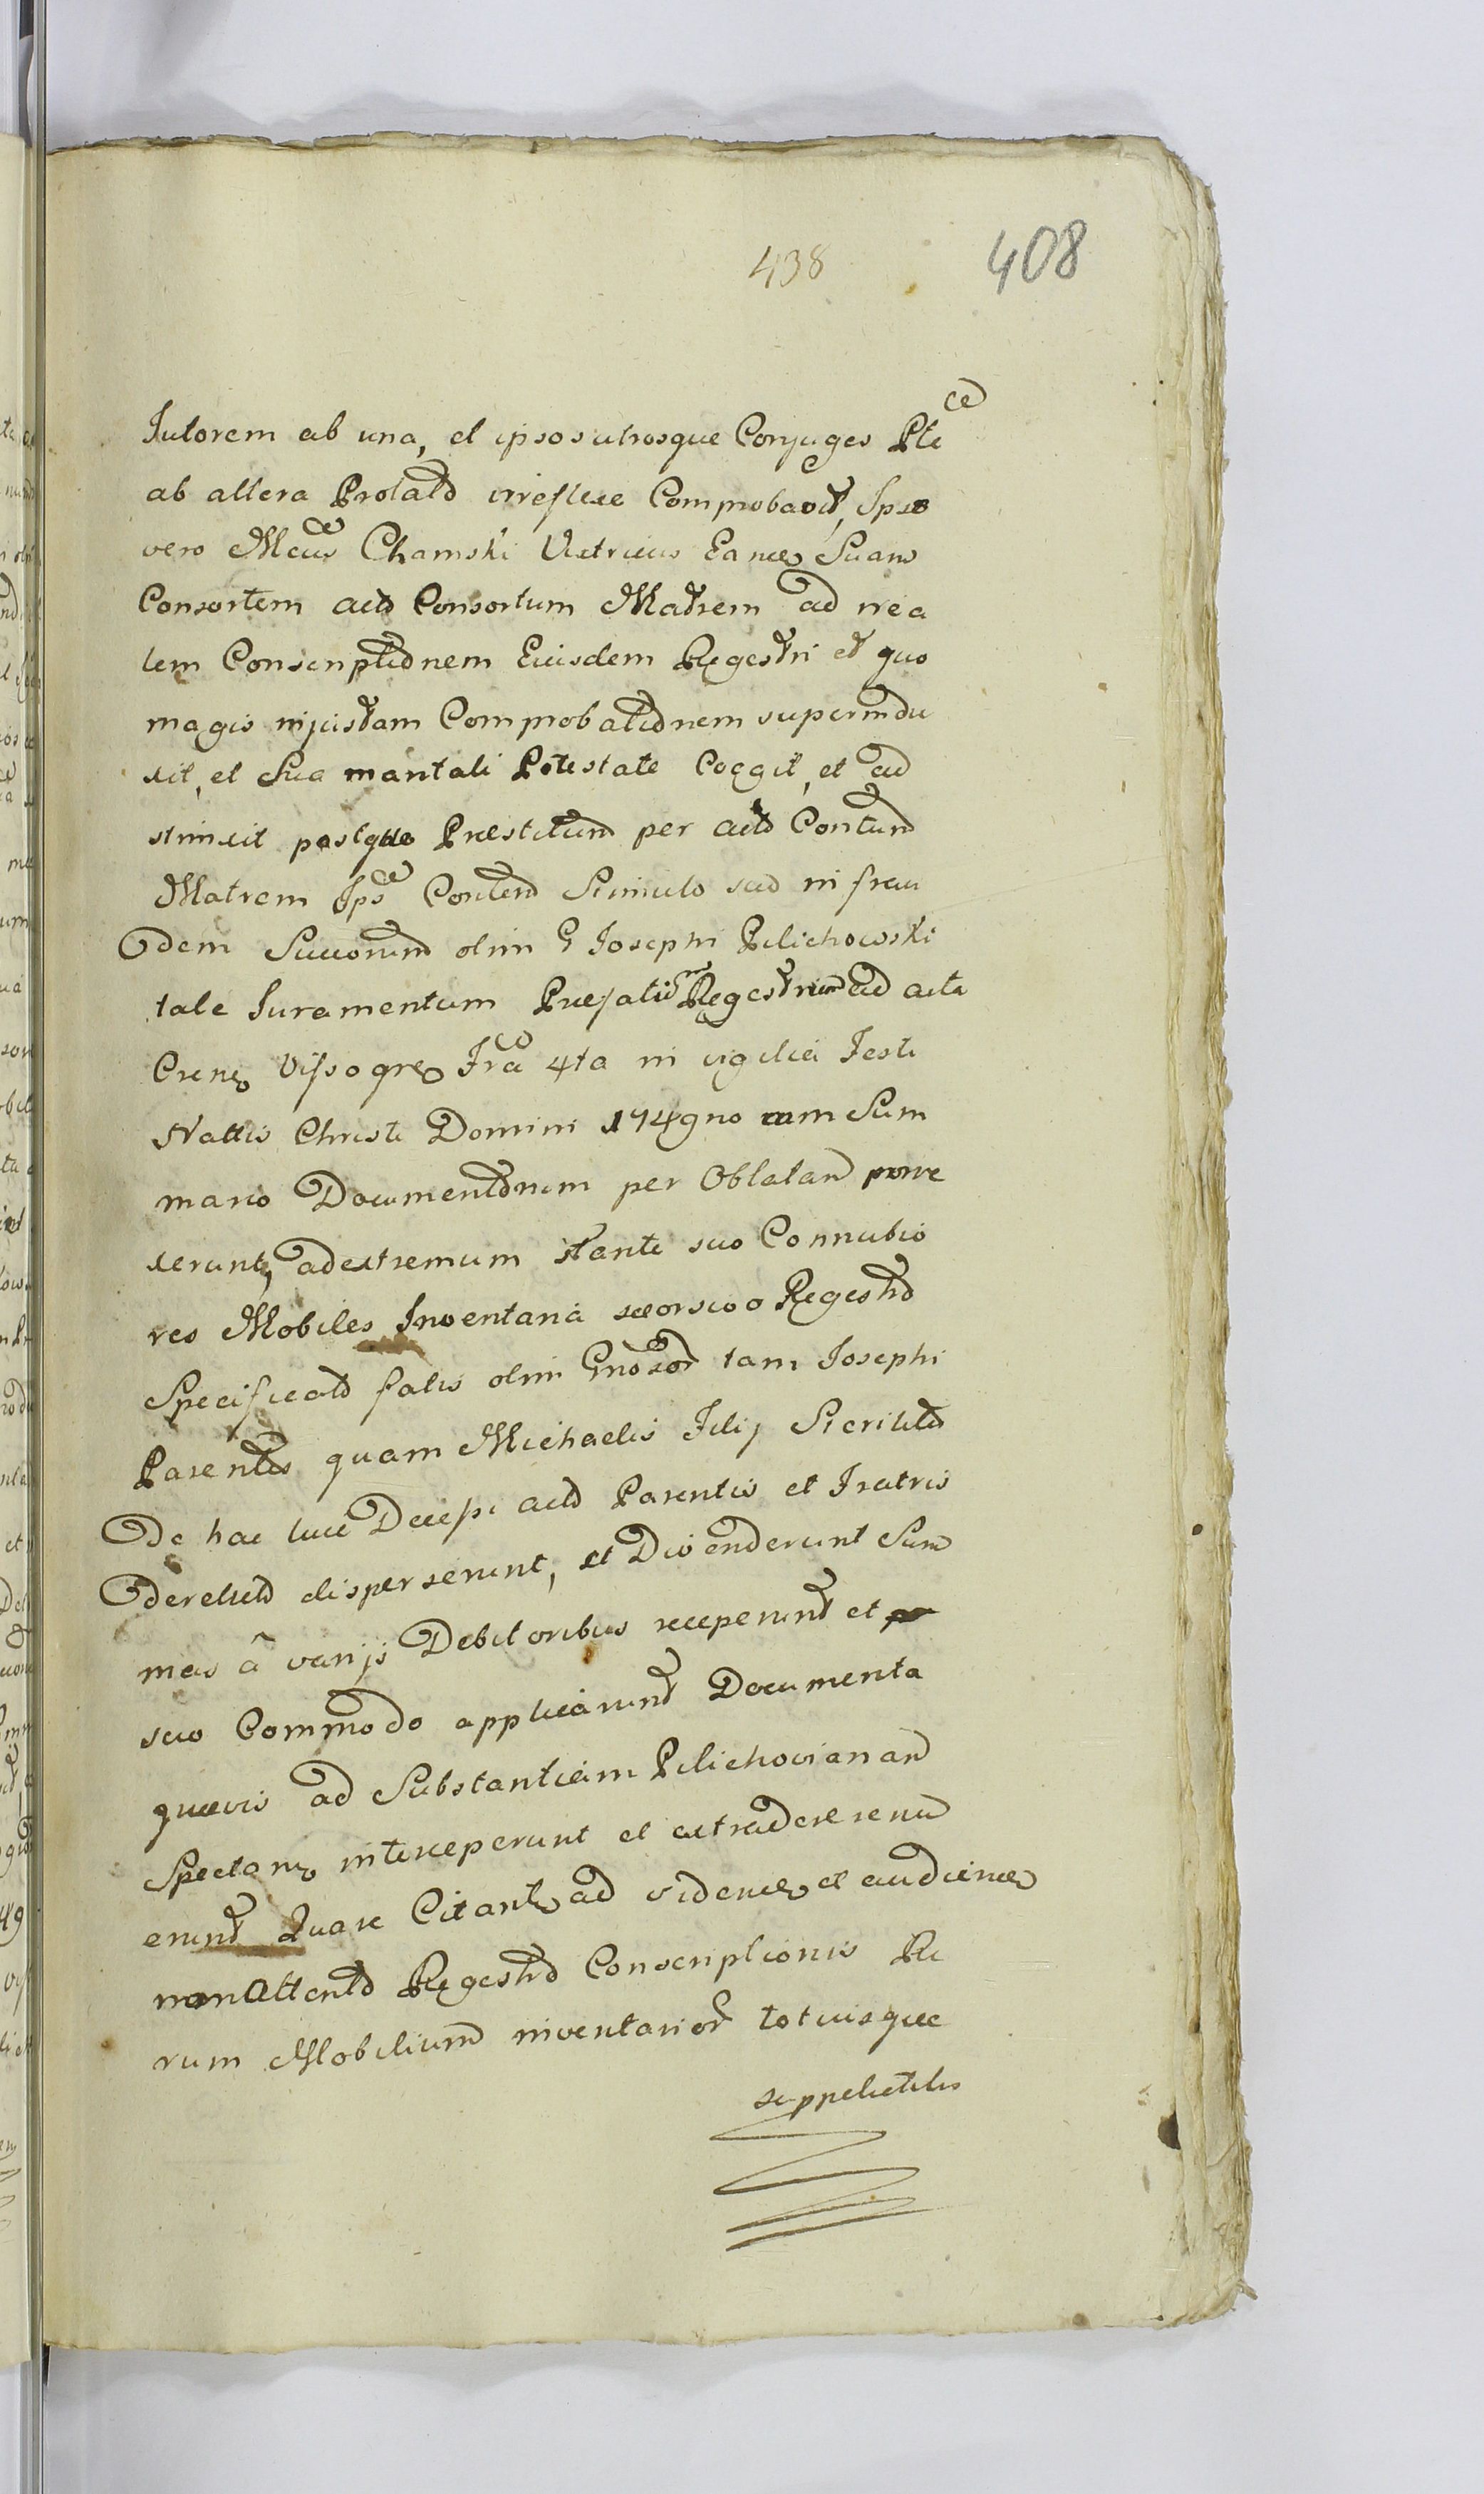 438 408
Tutorem ab una, et ipsos utrosque Conjuges Pte
ab altera Prolatd irreflexe Comprobavit, Ipse
vero Mcus Chamski Vitricus Eandem Suam
Consortem actd Consortum Matrem ad rea
lem Conscriptidnem Eiusdem Regestri et quo
magis injustam Comprobatidnem superindu
xit, et Sua maritali Potestate Coegit, et ad
strinxit postque Prestitum per actd Contum
Matrem Ips Contem sud in frau
dem Succorum olim G Josephi Pilichowski
tale Juramentum Prefatum Regestrum ad acta
Crens Vissogres Fra 4ta in vigilia Festi
Nattis Christi Domini 1749no cum Sum
mario Documentdrum per Oblatam porre
xerunt, adextremum stante suo Connubio
res Mobiles Inventaria seorsivo Regestrd
Specificatd fatis olim Gnosor tam Josephi
Parentis quam Michaelis Filij
De hac luce actd Parentis et Fratris
derelictd disperserunt, et Divenderunt Sum
mas â varijs Debitoribus receperunt et
suo Commodo applicarunt Documenta
quævis ad Substantiam Pilichovianam
Spectans interceperunt et extradere renu
erunt Quare Citants ad videndum et audiendum
non Attentd Regestrd Conscriptionis Re
rum Mobilium inventarior totiusque
suppelectilis